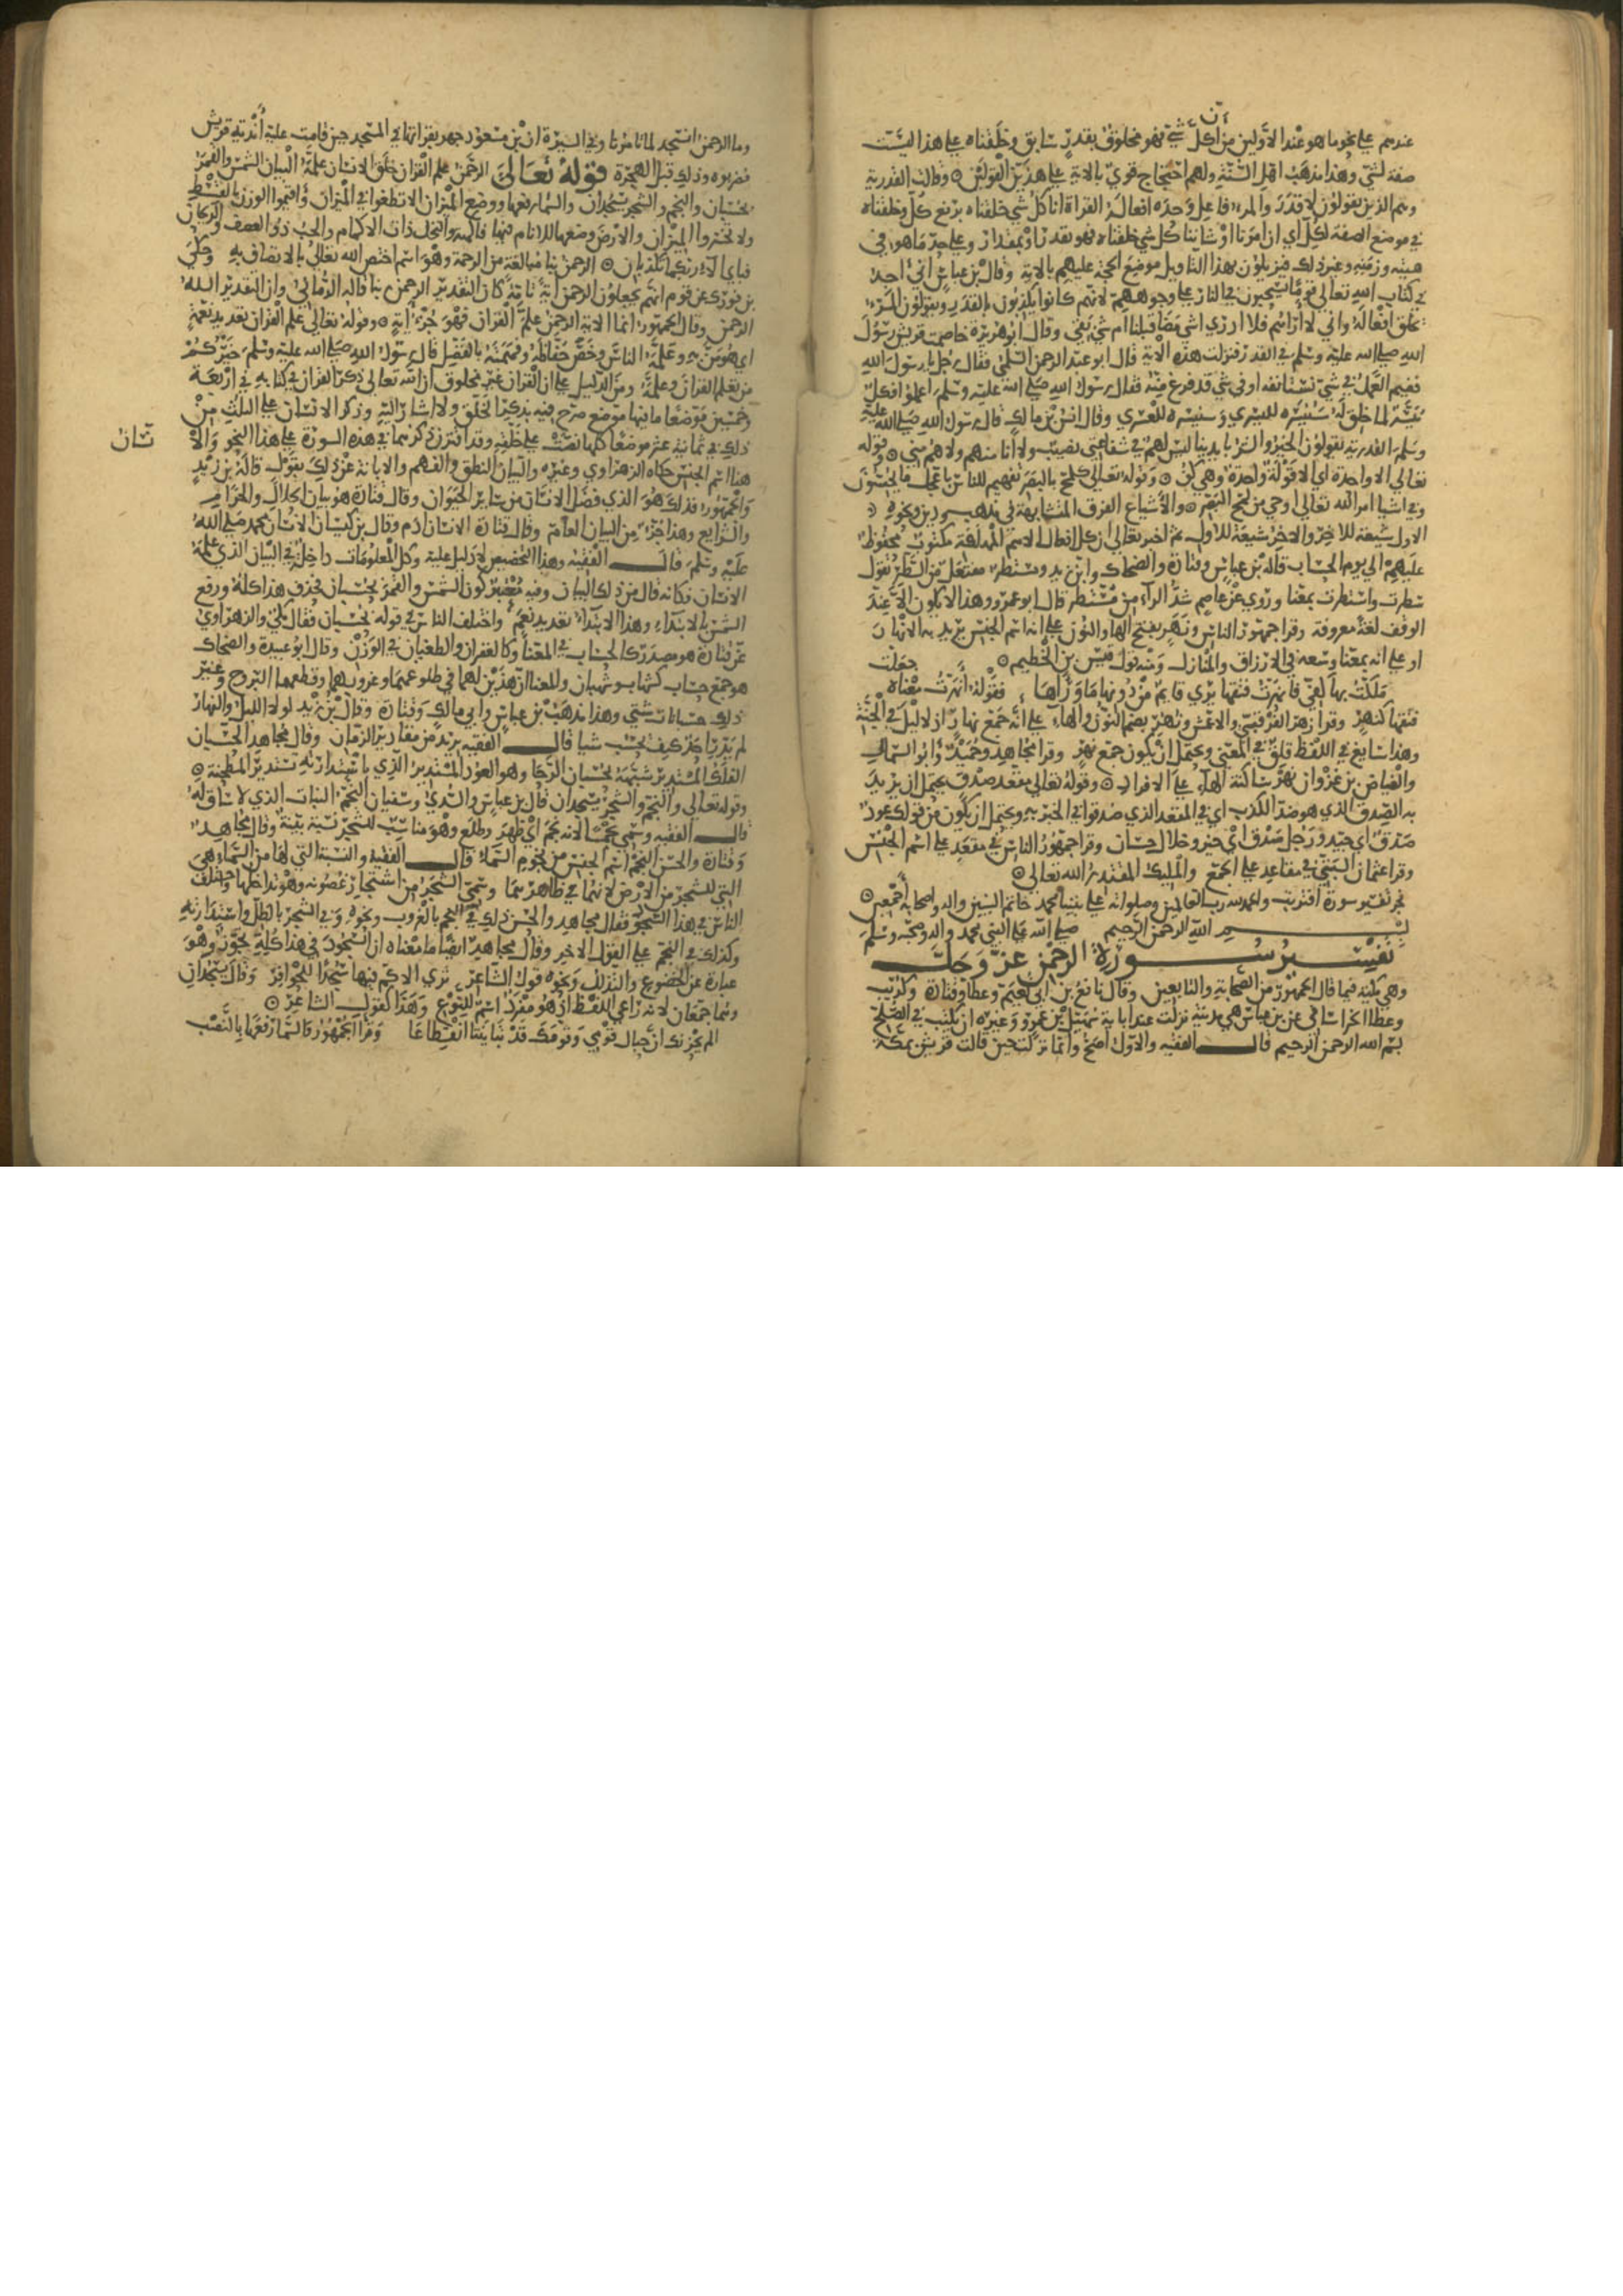 عندهم على نحو ما هو عند الاولين من ان كل شي فهو مخلوق بقدر سابق وخلقناه على هذا ليست
صفة لشي وهذا مذهب اهل السنة ولهم احتجاج قوي بالاية على هذين القولين وقالت القدرية
وهم الذين يقولون لا قدر والمرء فاعل وحده افعاله القراة انا كل شي خلقناه برفع كل وخلقناه
في موضع الصفة لكل اي ان امرنا او شاننا كل شي خلقناه فهو بقدر او بمقدار وعلى حد ما هو في
هيئته وزمنه وغير ذلك فيزيلون بهذا التاويل موضع الحجة عليهم بالاية وقال بن عباس اني اجد
في كتاب الله تعالى قوما يسحبون في النار على وجوههم لانهم كانوا يكذبون بالقدر ويقولون المرء
يخلق افعاله واني لا اراهم فلا ادري اشي مضا قبلنا ام شي بقي وقال ابو هريرة خاصمت قريش رسول
الله صلى الله عليه وسلم في القدر فنزلت هذه الاية قال ابو عبد الرحمن السلمي فقال رجل يا رسول الله
ففيم العمل في شي نستانفه او في شي قد فرغ منه فقال رسول الله صلى الله عليه وسلم اعملوا فكل
ميسر لما خلق له سنيسره لليسرى وسنيسره للعسرى وقال انس بن مالك قال رسول الله صلى الله عليه
وسلم القدرية يقولون الخير والشر بايدينا ليس لهم في شفاعتي نصيب ولا انا منهم ولا هم مني وقوله
تعالى الا واحدة اي الا قولة واحدة وهي كن وقوله تعالى كلمح بالبصر تفهيم للناس باعجل ما يحسون
وفي اشيا امر الله تعالى اوحى من لمح البصر والاشياع الفرق المتشابهة في مذهب ودين ونحوه
الاول شيعة للاخر والاخر شيعة للاول ثم اخبر تعالى ان كل افعال الامم المهلكة مكتوب محفوظ
عليهم الى يوم الحساب قاله بن عباس وقتادة والضحاك وابن زيد ومستطر مفتعل من السطر تقول
سطرت واستطرت بمعنا وروي عن عاصم شد الراء من مستطر قال ابو عمرو وهذا لا يكون الا عند
الوقف لغة معروفة وقرا جمهور الناس ونهر بفتح الها والنون على انه اسم الجنس يريد به الانهار
او على انه بمعنا وسعه في الارزاق والمنازل ومنه قول قيس بن الخطيم
ملكت بها كفي فانهرت فتقها يرى قايم من دونها ما وراها فقوله انهرت معناه جعلت
فتقها كنهر وقرا زهير الفرقبي والاعمش ونهر بضم النون والهاء على انه جمع نهار اذ لا ليل في الجنة
وهذا سايغ في اللفظ قلق في المعنى ويحتمل ان يكون جمع نهر وقرا مجاهد وحميد وابو السمال
والفياض بن غزوان نهر ساكنة الهاء على الافراد وقوله تعالى مقعد صدق يحتمل ان يريد
به الصدق الذي هو ضد الكذب اي في المقعد الذي صدقوا في الخبر به ويحتمل ان يكون من قولك عود
صدق اي جيد ورجل صدق اي خير وخلال حسان وقرا جمهور الناس في مقعد على اسم الجنس
وقرا عثمان البتي في مقاعد على الجمع والمليك المقتدر الله تعالى
نجز تفسير سورة اقتربت والحمد لله رب العالمين وصلواته على نبينا محمد خاتم النبيين واله واصحابه اجمعين
بسم الله الرحمن الرحيم صلى الله على النبي محمد واله وصحبه وسلم
تفسير سورة الرحمن عز وجل
وهي مكية فيما قال الجمهور من الصحابة والتابعين وقال نافع بن ابي نعيم وعطا وقتادة وكريب
وعطا الخراساني عن بن عباس هي مدينة نزلت عند اباية سهيل بن عمرو وغيره ان يكتب في الصلح
بسم الله الرحمن الرحيم قال الفقيه والاول اصح وانما نزلت حين قالت قريش بمكة
وما الرحمن انسجد لما تامرنا وفي السيرة ان بن مسعود جهر بقراتها في المسجد حين قامت عليه اندية قريش
فضربوه وذلك قبل الهجرة قوله تعالى الرحمن علم القران خلق الانسان علمه البيان الشمس والقمر
بحسبان والنجم والشجر يسجدان والسما رفعها ووضع الميزان الا تطغوا في الميزان واقيموا الوزن بالقسط
ولا تخسروا الميزان والارض وضعها للانام فيها فاكهة والنخل ذات الاكمام والحب ذو العصف والريحان
فباي الاء ربكما تكذبان الرحمن بنا مبالغة من الرحمة وهو اسم اختص الله تعالى بالاتصاف به وحكى
بن فورك عن قوم انهم يجعلون الرحمن اية تامة كان التقدير الرحمن ربنا قاله الرماني وان التقدير الله
الرحمن وقال الجمهور انما الاية الرحمن علم القران فهو جزء اية وقوله تعالى علم القران تعديد نعمة
اي هو من به وعلمه الناس وخص حفاظه وفهمته بالفضل قال رسول الله صلى الله عليه وسلم خيركم
من تعلم القران وعلمه ومن الدليل على ان القران غير مخلوق ان الله تعالى ذكر القران في كتابه في اربعة
وخمسين موضعا ما فيها موضع صرح فيه بذكر الخلق ولا اشار اليه وذكر الانسان على الثلث من
ذلك في ثمانية عشر موضعا كلها نصت على خلقه وقد اقترن ذكرهما في هذه السورة على هذا النحو والانسان
هنا اسم الجنس حكاه الزهراوي وغيره والبيان النطق والفهم والابانة عن ذلك بقول قاله بن زيد
والجمهور فذلك هو الذي فضل الانسان من ساير الحيوان وقال قتادة هو بيان الحلال والحرام
والشرايع وهذا جزء من البيان العام وقال قتادة الانسان ادم وقال بن كيسان الانسان محمد صلى الله
عليه وسلم قال الفقيه وهذا التخصيص لا دليل عليه وكل المعلومات داخل في البيان الذي علمه
الانسان فكانه قال من ذلك البيان وفيه معتبر كون الشمس والقمر بحسبان فحذف هذا كله ورفع
الشمس بالابتداء وهذا الابتداء تعديد نعم واختلف الناس في قوله بحسبان فقال مكي والزهراوي
عن قتادة هو مصدر كالحساب في المعنا وكالغفران والطغيان في الوزن وقال ابو عبيدة والضحاك
هو جمع حساب كشهاب وشهبان والمعنا ان هذين لهما في طلوعهما وغروبهما وقطعهما البروج وغير
ذلك حسبانات شتى وهذا مذهب بن عباس وابي مالك وقتادة وقال بن زيد لولا الليل والنهار
لم يدر احد كيف يحسب شيا قال الفقيه يريد من مقادير الزمان وقال مجاهد الحسبان
الفلك المستدير شبهه بحسبان الرحا وهو العود المستدير الذي باستدارته تستدير المطحنة
وقوله تعالى والنجم والشجر يسجدان قال بن عباس والسدي وسفيان النجم النبات الذي لا ساق له
قال الفقيه وسمي نجما لانه نجم اي ظهر وطلع وهو مناسب للشجر نسبة بينة وقال مجاهد
وقتادة والحسن النجم اسم الجنس من نجوم السماء قال الفقيه والنسبة التي لها من السماء هي
التي للشجر من الارض لانهما في ظاهرهما وسمي الشجر من اشتجار غصونه وهو تداخلها واختلف
الناس في هذا السجود فقال مجاهد والحسن ذلك في النجم بالغروب ونحوه وفي الشجر بالظل واستدارته
وكذلك في النجم على القول الاخير وقال مجاهد ايضا ما معناه ان السجود في هذا كله تجوز وهو
عبارة عن الخضوع والتذلل ونحوه قول الشاعر ترى الاكم فيها سجدا للحوافر وقال يسجدان
وهما جمعان لانه راعى اللفظ اذ هو مفرد اسم للنوع وهذا كقول الشاعر
الم يحزنك ان حبال قومي وقومك قد تباينتا انقطاعا وقرا الجمهور والسماء رفعها بالنصب